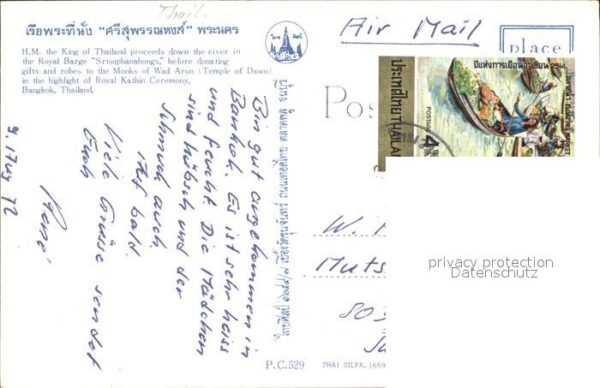 Thail.
เรือพระที่นั่ง "ศรีสุพรรณหงส์" พระนคร
H.M. the King of Thailand proceeds down the river in
the Royal Barge "Srisuphanahongs," before donating
gifts and robes to the Monks of Wad Arun (Temple of Dawn)
in the highlight of Royal Kathin Ceremony,
Bangkok, Thailand.
Bin gut angekommen in
Bankok. Es ist sehr heiss
und feucht. Die Mädchen
sind hübsch und der
Schmuck auch.
Auf bald
Viele Grüsse sendet
Euch
René
P.C.529
THAI SILPA, 1659
Air Mail
place
ปีแห่งการเยือนเอเซีย
ประเทศไทย THAILAND
POSTAGE
4
W.
Muts
803
privacy protection
Datenschutz